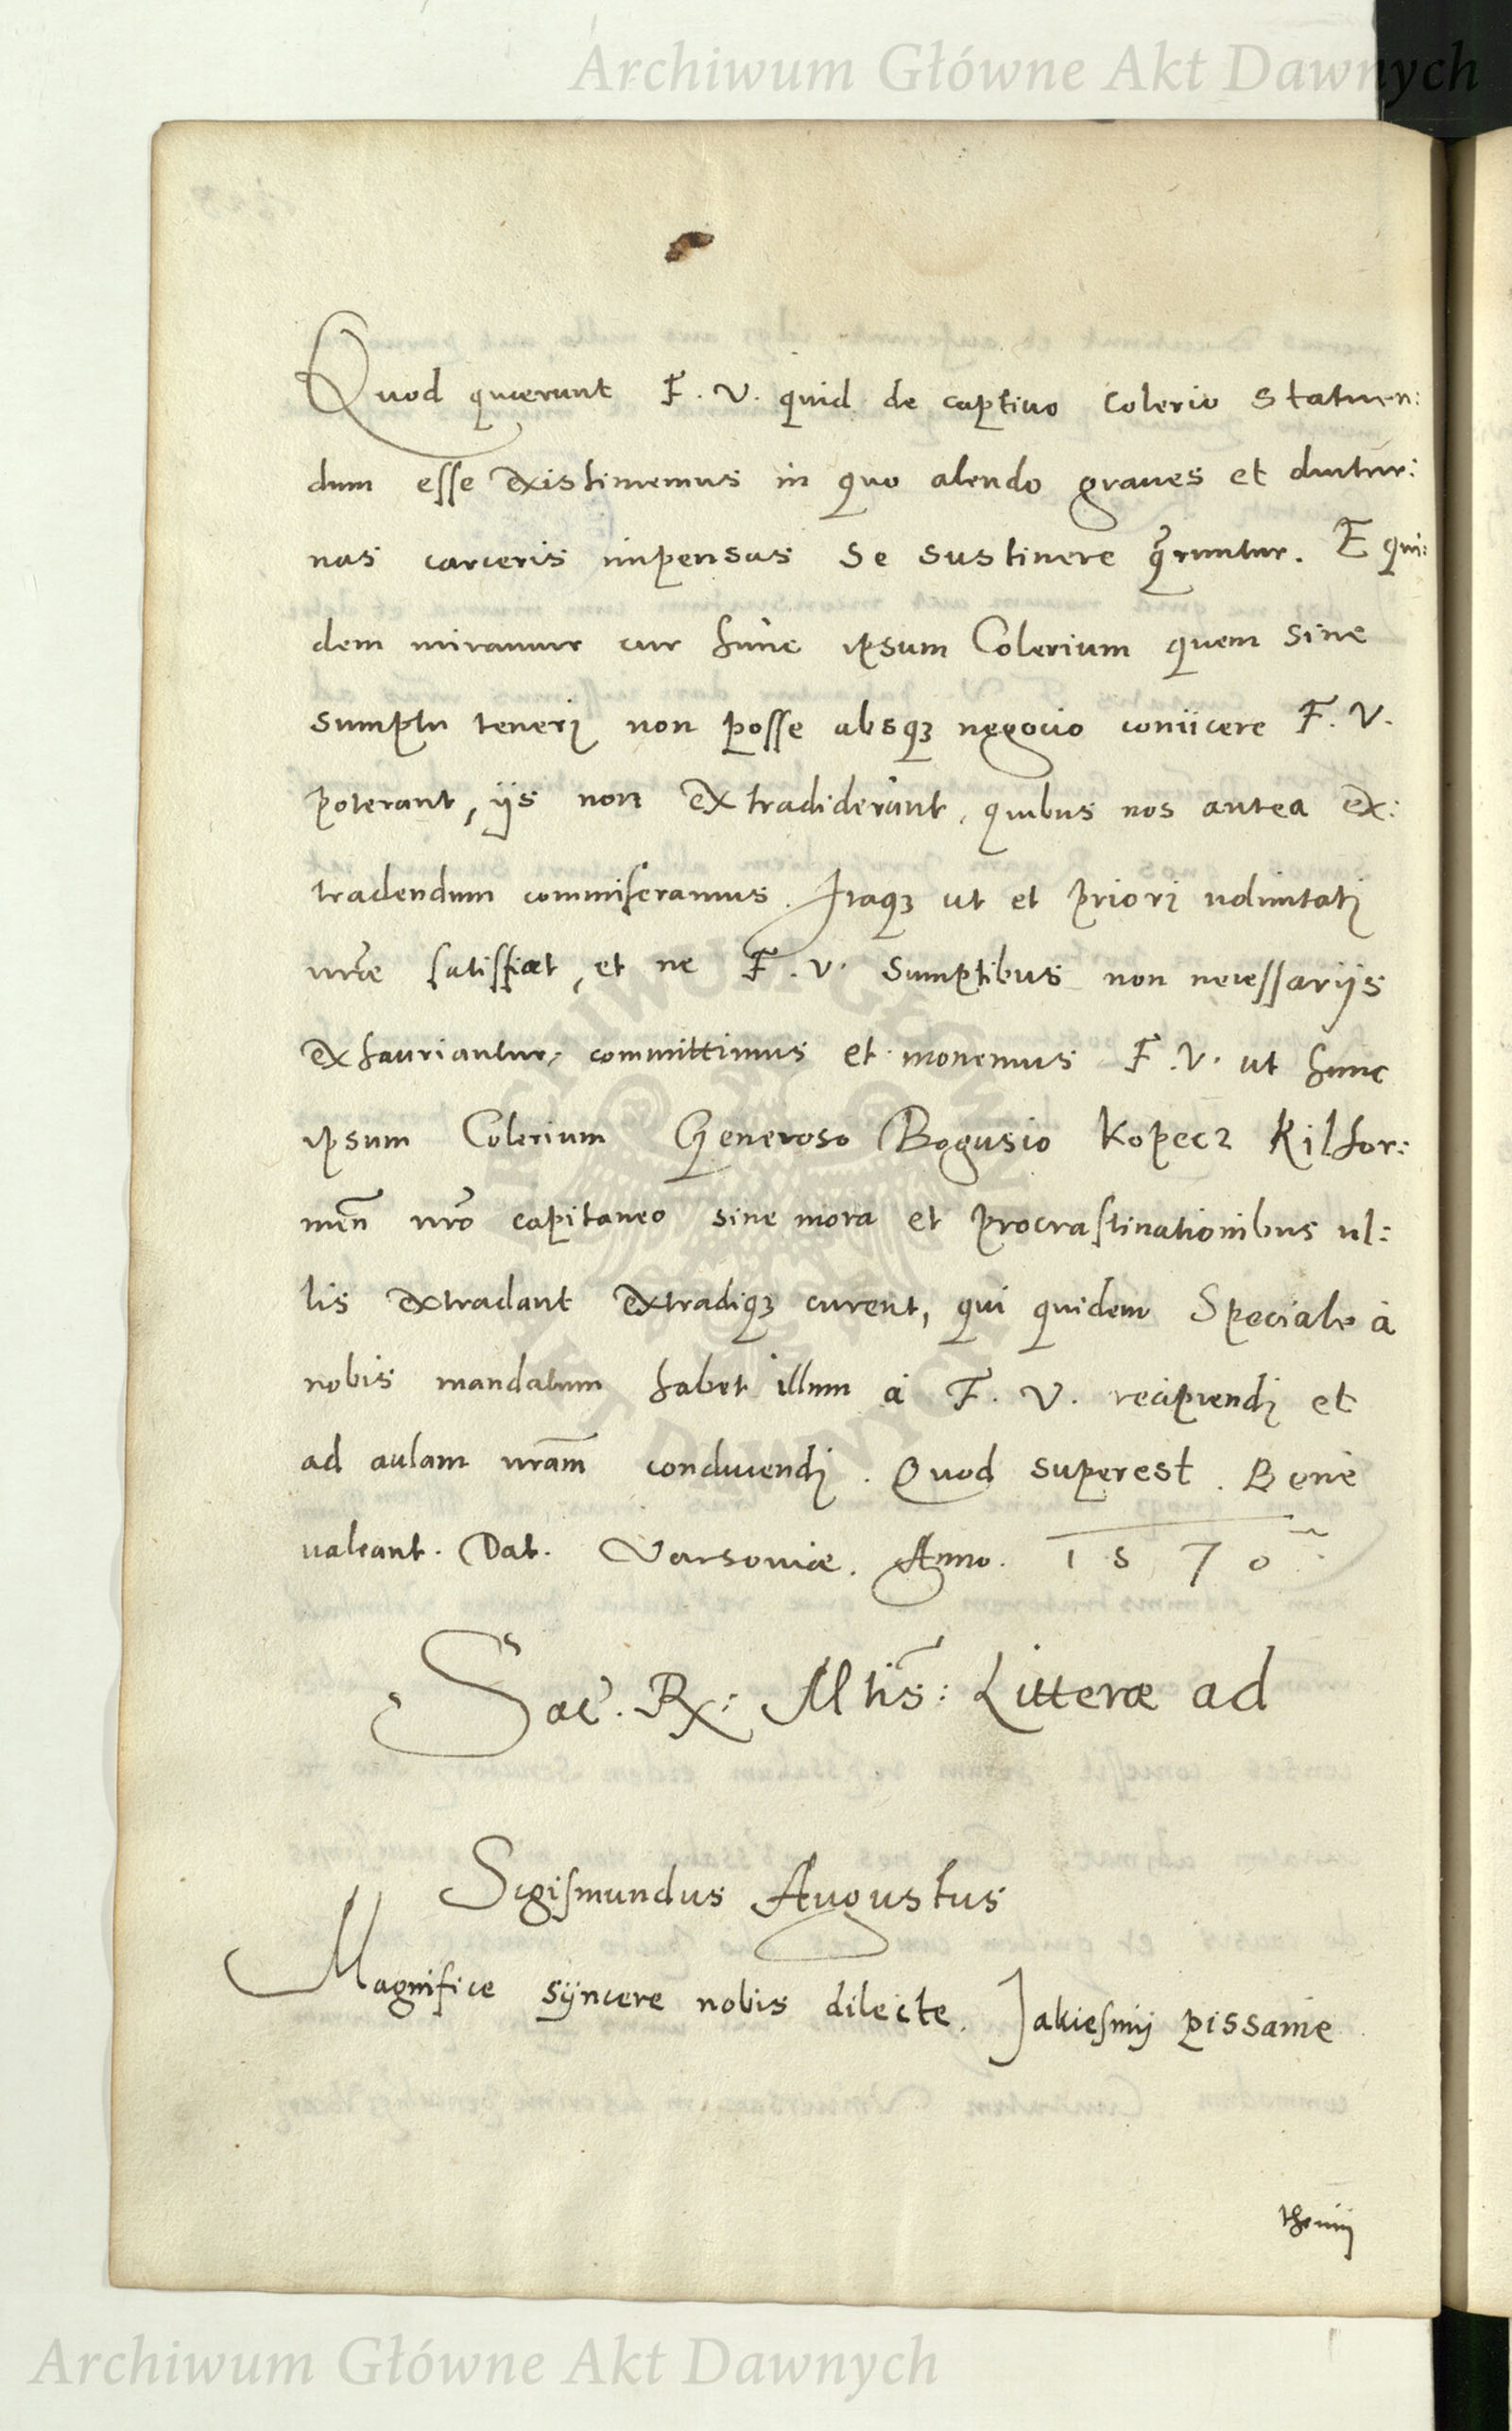 Archiwum Główne Akt Dawnych
Quod quaerunt F. V. quid de captiuo Colerio statuen:
dum esse existimemus in quo alendo graues et diutur:
nas carceris impensas se sustinere qu̓runtur. Equi:
dem miramur cur hunc ipsum Colerium quem sine
sumptu teneri non posse absqꝫ negocio coniicere F. V.
poterant, ijs non extradiderint, quibus nos antea ex:
tradendum commiseramus. Itaqꝫ ut et priori uoluntati
nr̃ae satisfiat, et ne F. V. sumptibus non necessarijs
exhauriantur, committimus et monemus F. V. ut hunc
ipsum Colerium Generoso Bogusio Kopecz Kilhor:
meñ nr̃o capitaneo sine mora et procrastinationibus ul:
lis extradant extradiqꝫ curent, qui quidem speciale à
nobis mandatum habet illum à F. V. recipiendi et
ad aulam nr̃am conducendi. Quod superest. Bene
ualeant. Dat. Varsoviae. Anno. 1570
Sac. Rx: Mtis: Litterae ad
Sigismundus Augustus
Magnifice syncere nobis dilecte. Jakiesmy pissanie
themij
ARCHIWUM GŁÓWNE AKT DAWNYCH
Archiwum Główne Akt Dawnych